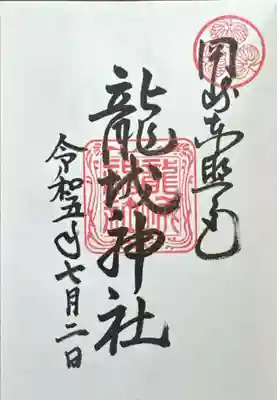 岡崎東照宮
龍城神社
令和五年七月二日